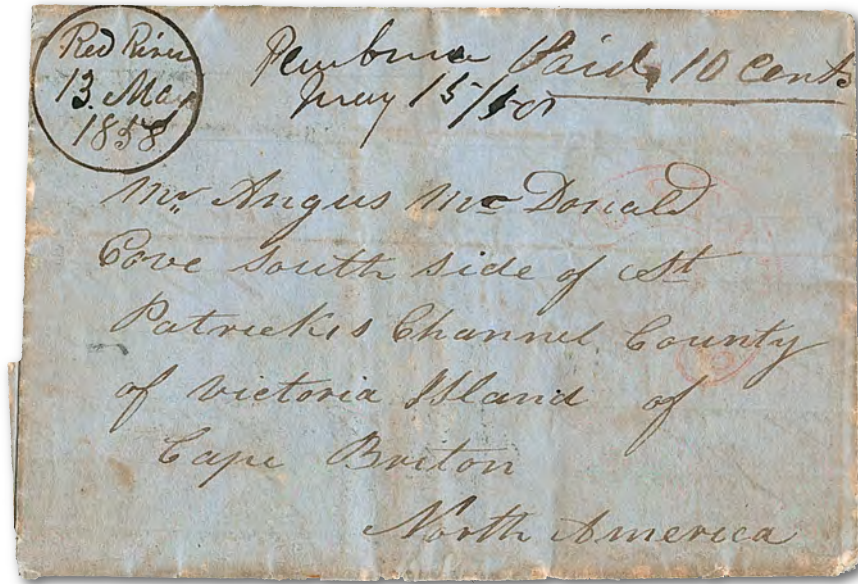 Red River
13. May
1858
Pembina
May 15/58
Paid 10 Cents
Mr. Angus Mc Donald
Cove South Side of St
Patrickis Channel County
of Victoria Island of
Cape Briton
North America